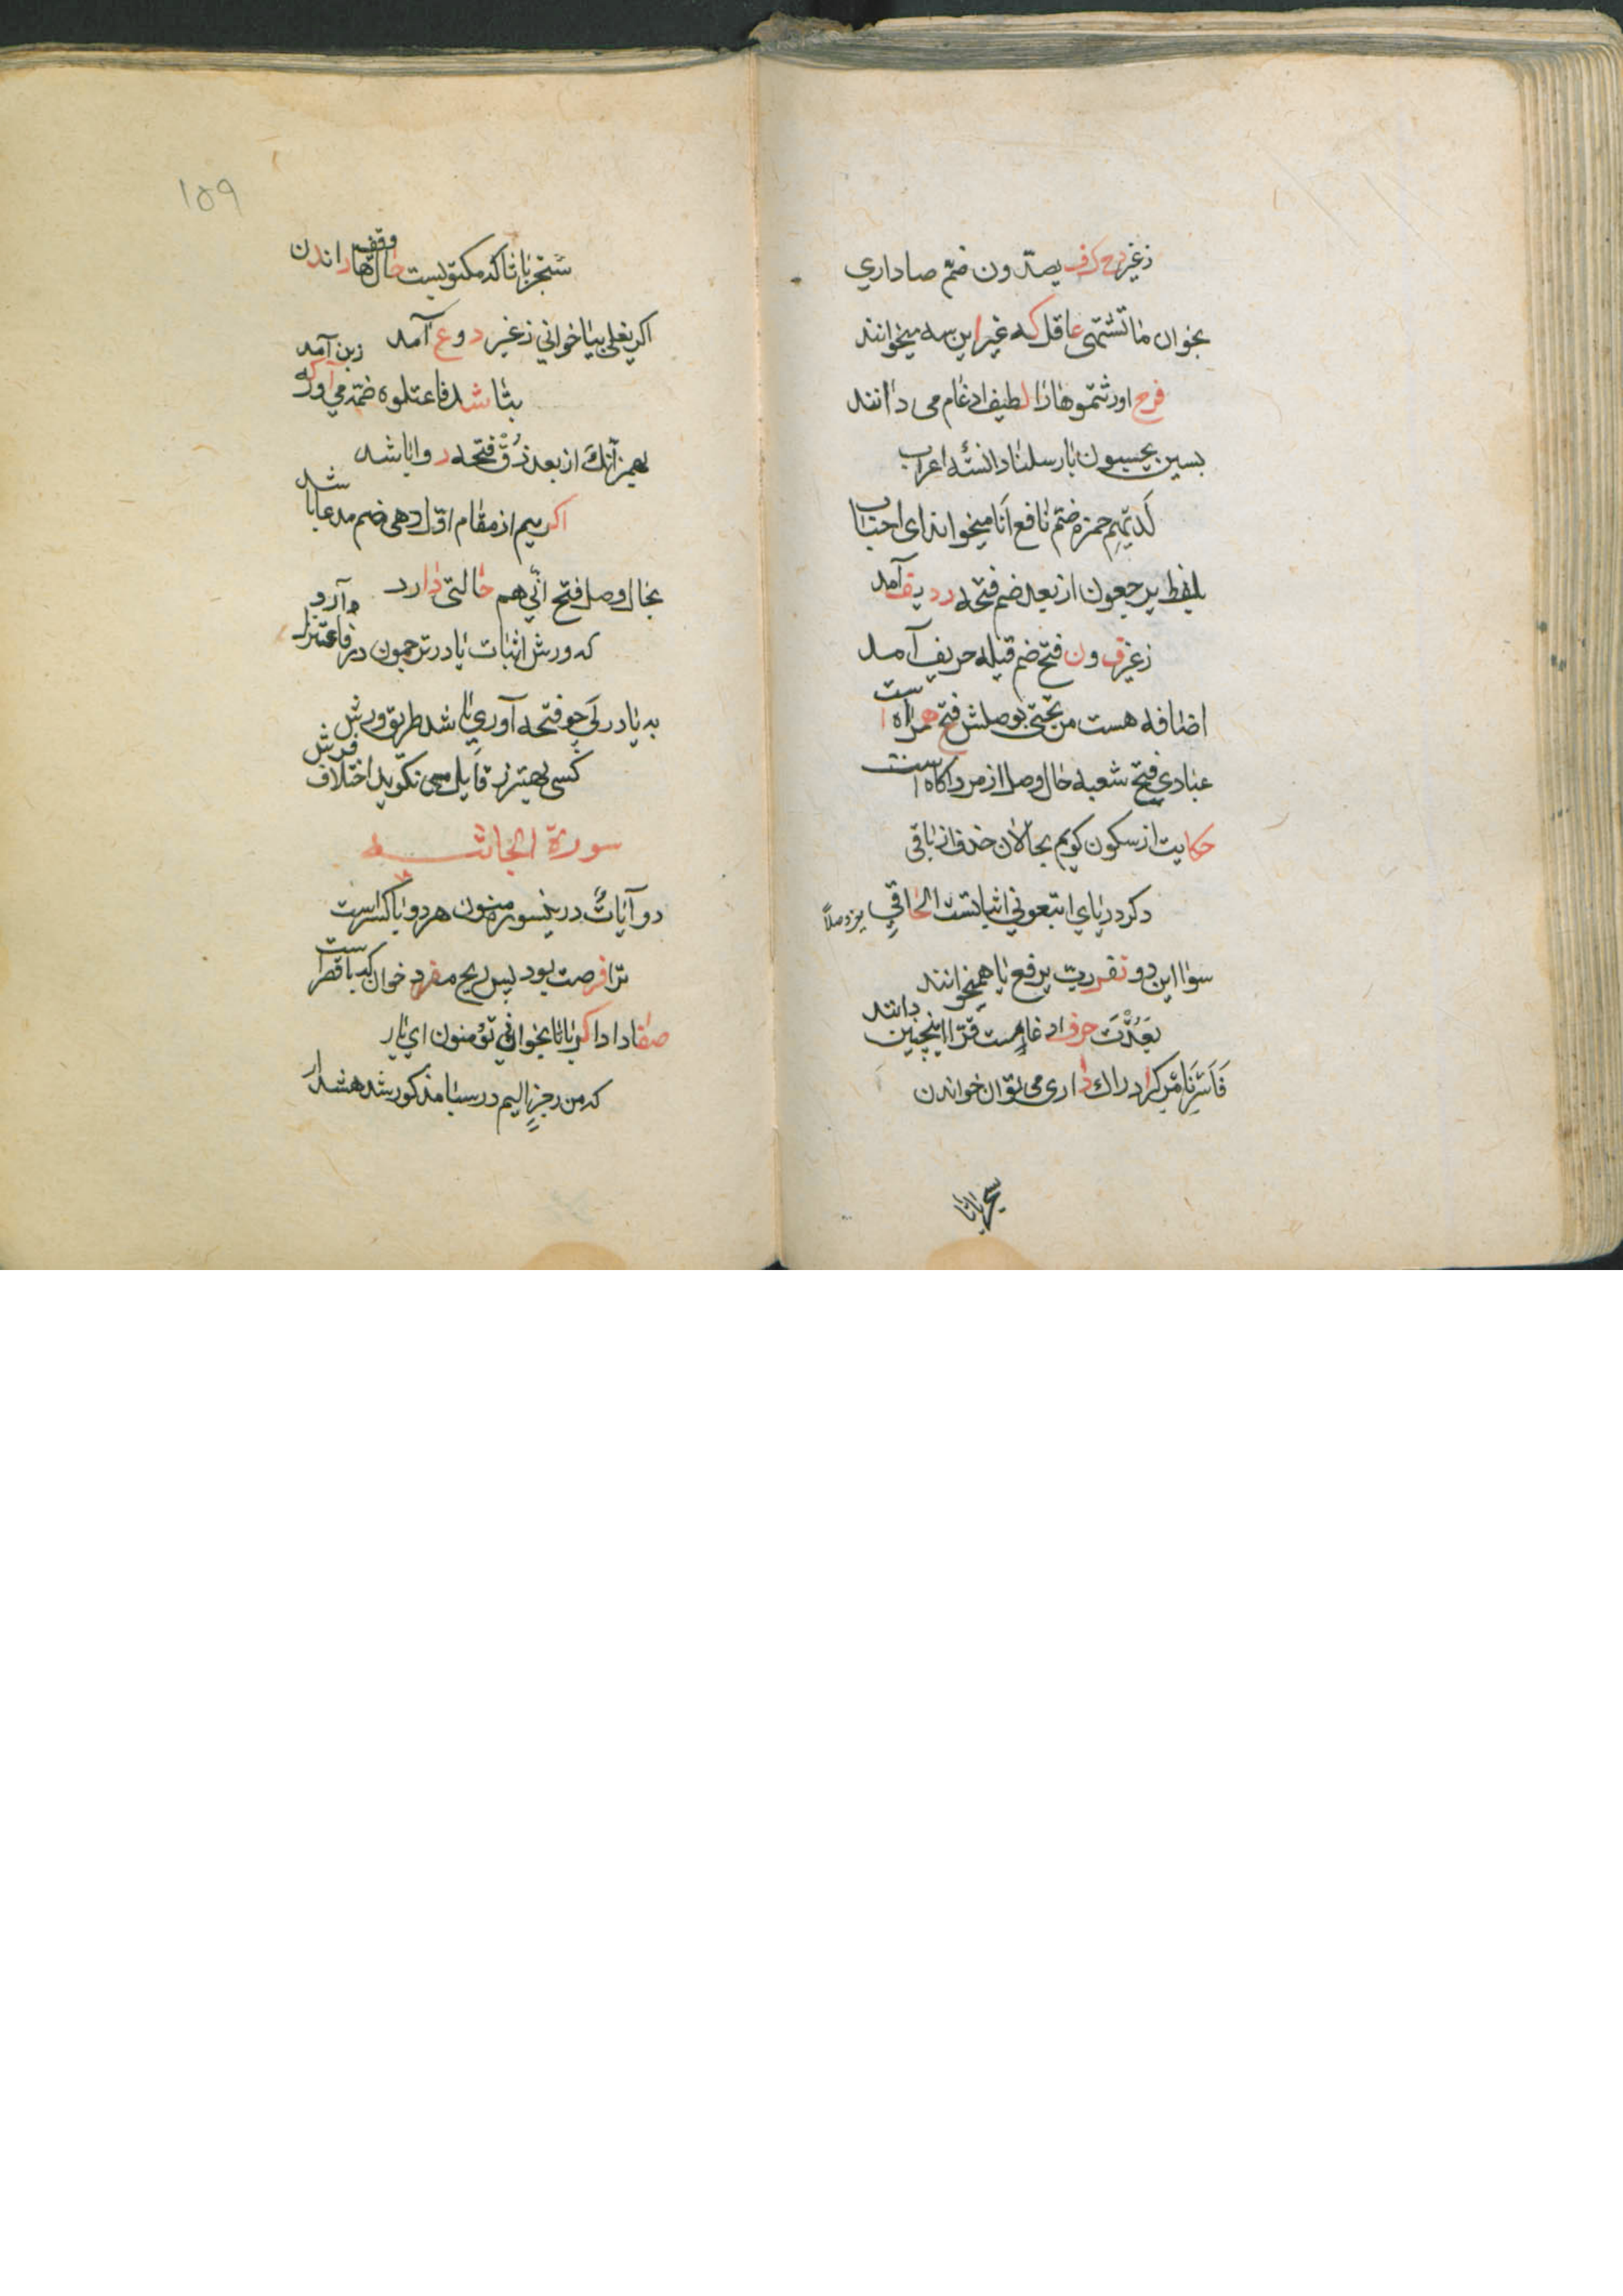 زغیر کف یصدون ضم صاداری
بخوان ما تشتهی عاقل که غیر این سه میخوانند
فرح اورثتموها را لطیف ادغام می دانند
بسین یحسبون با رسلنا دانسته اعراب
لدیهم حمزه ضم نافع انا میخواند ای احباب
بلفظ یرجعون از بعد ضم فتحه ردیف آمد
زغیر ف و ن فتح ضم قیله حریف آمد
اضافه هست من تحتی بوصلش فتح همراه است
عبادی فتح شعبه حال وصل از مرد آگاه است
حکایت از سکون گویم بحالان حذف از باقی
دگر در یای اتبعونی اثباتست الحاقی
سوا این دو نفر رب برفع با همیخوانند
بعذت حرف ادغامست قرا اینچنین دانند
فاسر نامر کرا دراك داری می توان خواندن
سحر باتا
۱۵۹
شجر باتا که مکتوبست حال وقف ها راندن
اکر یغلی بیا خوانی زغیر د و ع آمد
بتا شد فاعتلوه ضمه می آور که زین آمد
بهمز انك از بعد ذق فتحه روا باشد
اکر میم از مقام اول دهی ضم مدعا باشد
بحال وصل فتح انی هم حالتی دارد
که ورش اثبات یا در ترجمون در فاعتزلو آرد
به یا در لی چو فتحه آوری باشد طریق ورش
کسی بهتر ز قایل می نگوید اختلاف فرش
سورة الجاثیه
دو آیات در ینسوره منون هر دو با کسر است
ترا فرصت بود پس ریح مفرد خوان که با قصر است
صفا دادا کر باتا بخوانی تؤمنون ای یار
که من رجز الیم در سبا مذکور شد هشدار